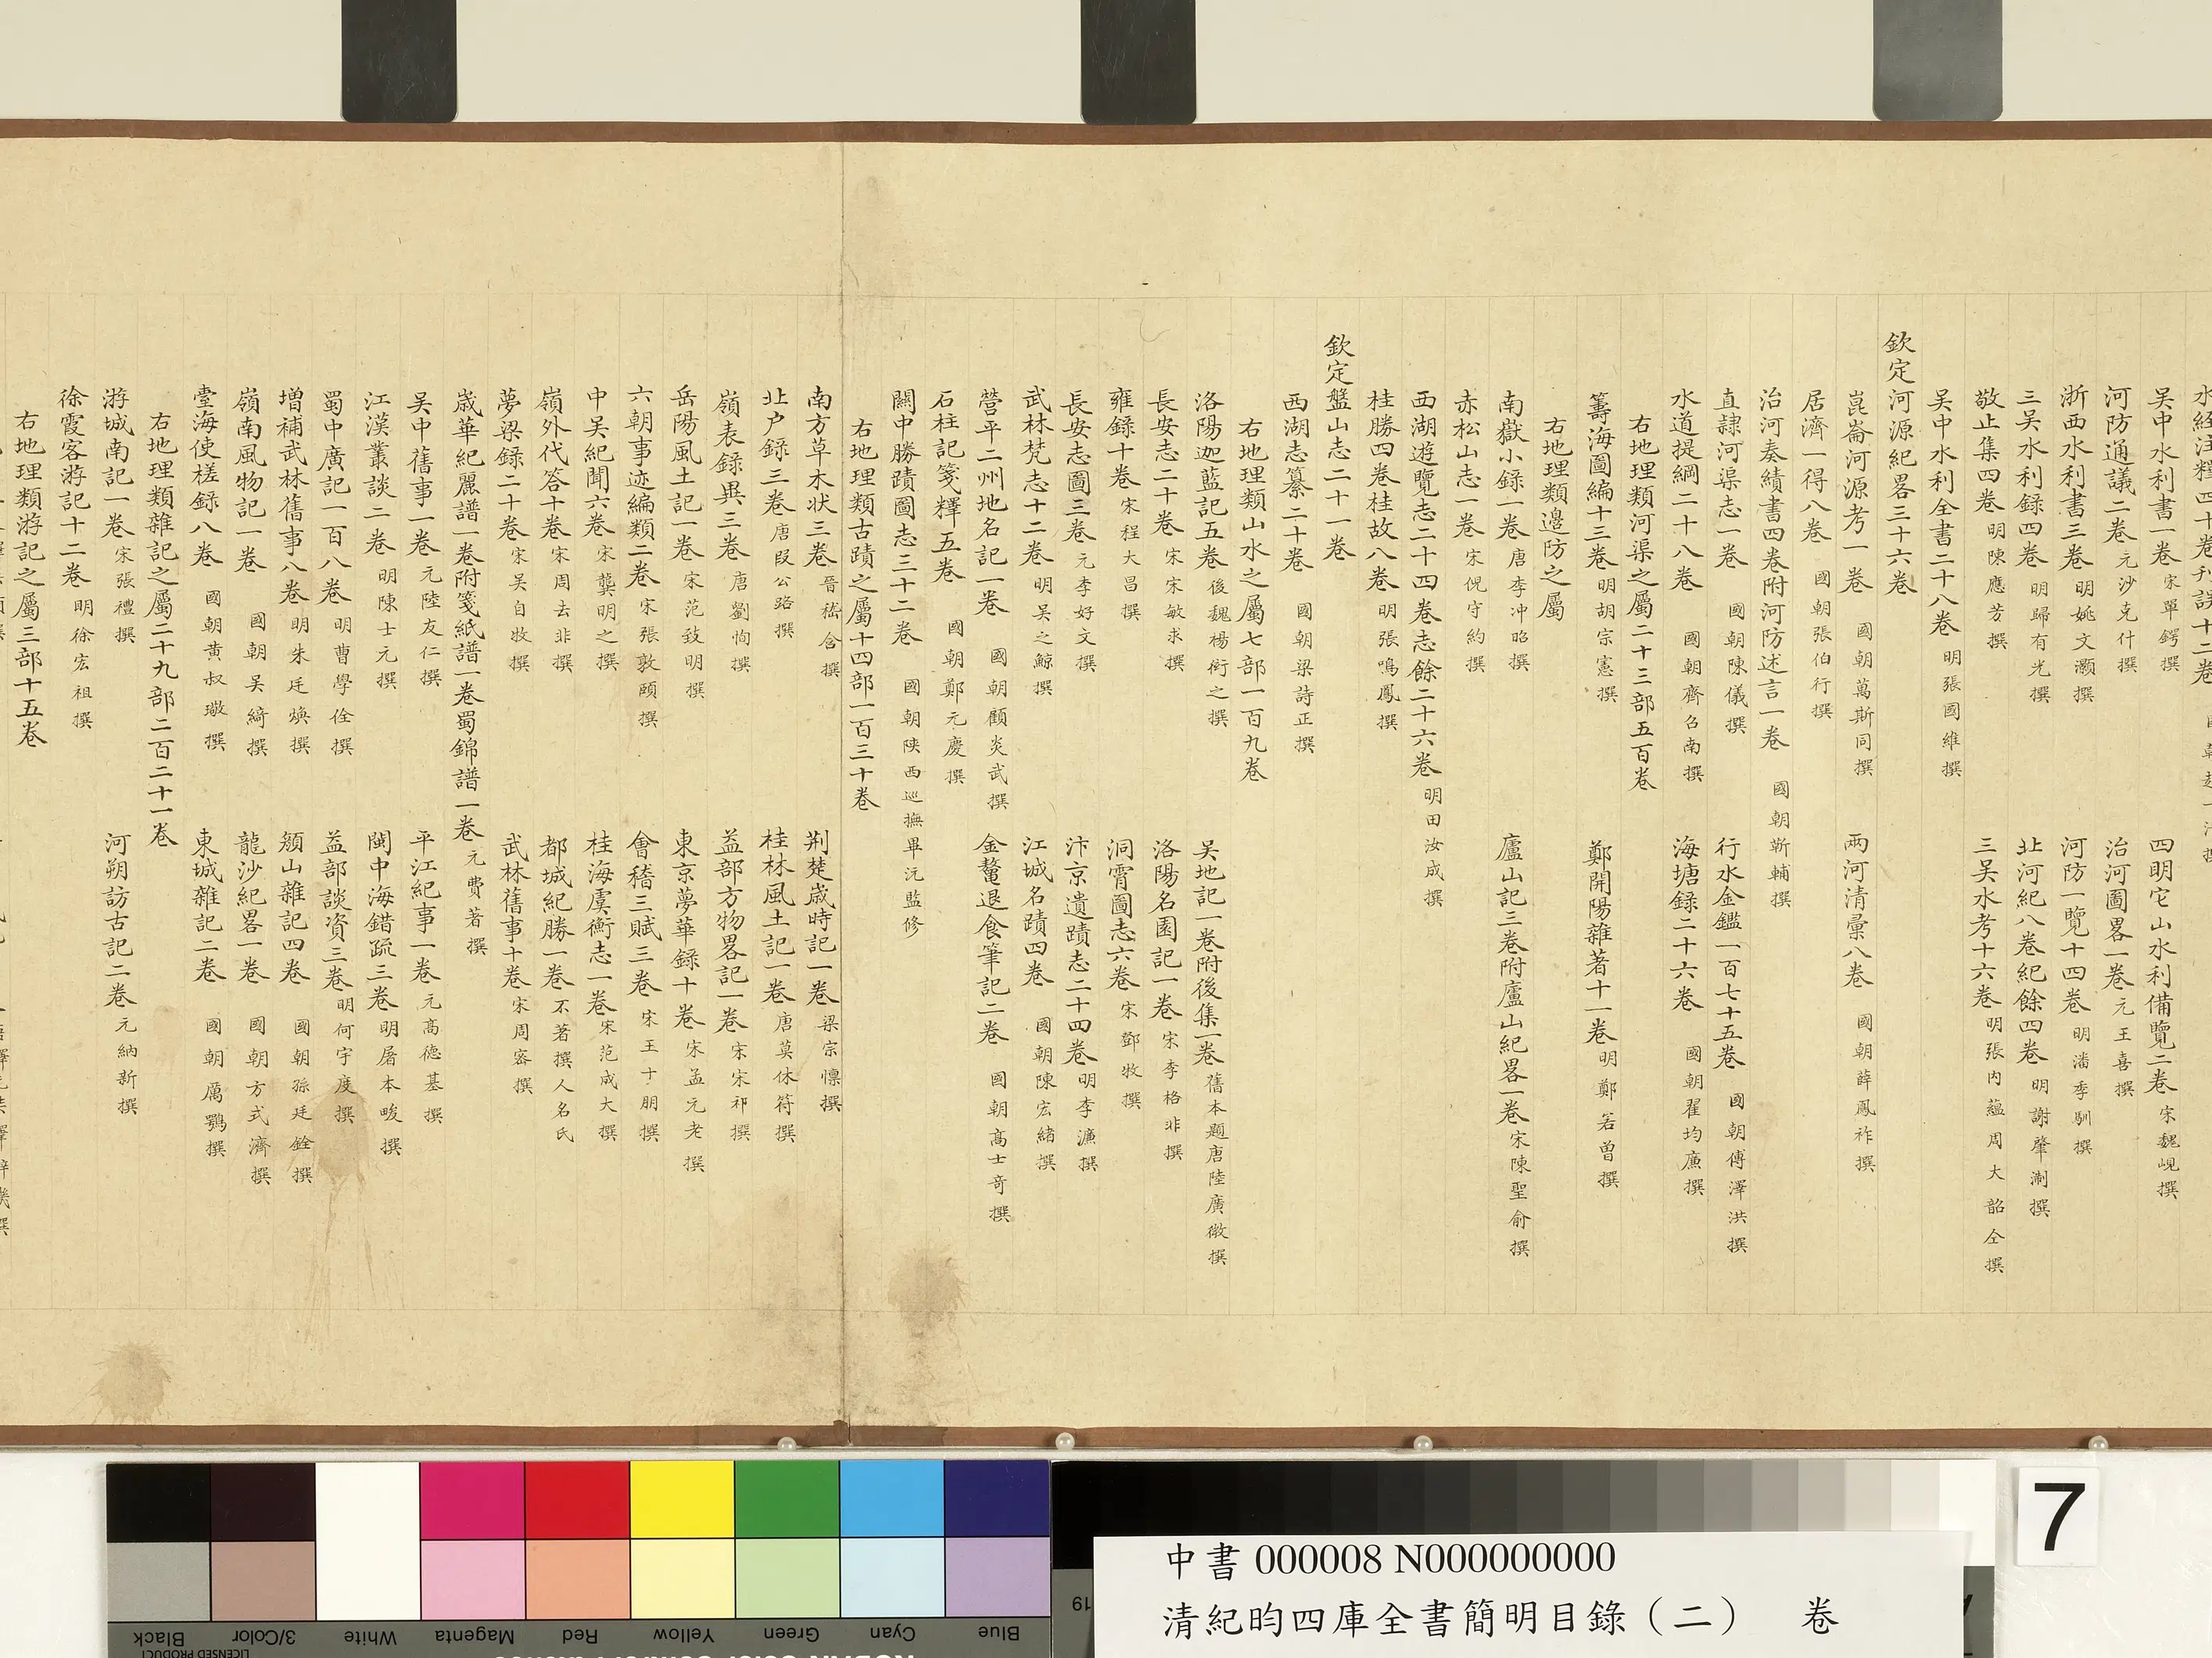 水經注釋四十卷刋誤十二卷
吳中水利書一卷 宋單鍔撰 四明它山水利備覽二卷 宋魏峴撰
河防通議二卷 元沙克什撰 治河圖畧一卷 元王喜撰
浙西水利書三卷 明姚文灝撰 河防一覽十四卷 明潘季馴撰
三吳水利錄四卷 明歸有光撰 北河紀八卷紀餘四卷 明謝肇淛撰
敬止集四卷 明陳應芳撰 三吳水考十六卷 明張內蘊周大韶仝撰
吳中水利全書二十八卷 明張國維撰
欽定河源紀畧三十六卷
崑崙河源考一卷 國朝萬斯同撰 兩河清彙八卷 國朝薛鳳祚撰
居濟一得八卷 國朝張伯行撰
治河奏績書四卷附河防述言一卷 國朝靳輔撰
直隷河渠志一卷 國朝陳儀撰 行水金鑑一百七十五卷 國朝傅澤洪撰
水道提綱二十八卷 國朝齊召南撰 海塘錄二十六卷 國朝翟均廉撰
右地理類河渠之屬二十三部五百卷
籌海圖編十三卷 明胡宗憲撰 鄭開陽雜著十一卷 明鄭若曾撰
右地理類邊防之屬
南嶽小錄一卷 唐李冲昭撰 廬山記三卷附廬山紀畧一卷 宋陳聖俞撰
赤松山志一卷 宋倪守約撰
西湖遊覽志二十四卷志餘二十六卷 明田汝成撰
桂勝四卷桂故八卷 明張鳴鳳撰
欽定盤山志二十一卷
西湖志纂二十卷 國朝梁詩正撰
右地理類山水之屬七部一百九卷
洛陽迦藍記五卷 後魏楊衒之撰 吳地記一卷附後集一卷 舊本題唐陸廣微撰
長安志二十卷 宋宋敏求撰 洛陽名園記一卷 宋李格非撰
雍錄十卷 宋程大昌撰 洞霄圖志六卷 宋鄧牧撰
長安志圖三卷 元李好文撰 汴京遺蹟志二十四卷 明李濂撰
武林梵志十二卷 明吳之鯨撰 江城名蹟四卷 國朝陳宏緒撰
營平二州地名記一卷 國朝顧炎武撰 金鰲退食筆記二卷 國朝高士竒撰
石柱記箋釋五卷 國朝鄭元慶撰
關中勝蹟圖志三十二卷 國朝陝西巡撫畢沅監修
右地理類古蹟之屬十四部一百三十卷
南方草木狀三卷 晉嵇含撰 荆楚歲時記一卷 梁宗懍撰
北户錄三卷 唐段公路撰 桂林風土記一卷 唐莫休符撰
嶺表錄異三卷 唐劉恂撰 益部方物畧記一卷 宋宋祁撰
岳陽風土記一卷 宋范致明撰 東京夢華錄十卷 宋孟元老撰
六朝事迹編類二卷 宋張敦頤撰 會稽三賦三卷 宋王十朋撰
中吳紀聞六卷 宋龔明之撰 桂海虞衡志一卷 宋范成大撰
嶺外代答十卷 宋周去非撰 都城紀勝一卷 不著撰人名氏
夢梁錄二十卷 宋吳自牧撰 武林舊事十卷 宋周密撰
歲華紀麗譜一卷附箋紙譜一卷蜀錦譜一卷 元費著撰
吳中舊事一卷 元陸友仁撰 平江紀事一卷 元高德基撰
江漢叢談二卷 明陳士元撰 閩中海錯疏三卷 明屠本畯撰
蜀中廣記一百八卷 明曹學佺撰 益部談資三卷 明何宇度撰
增補武林舊事八卷 明朱廷煥撰 顏山雜記四卷 國朝孫廷銓撰
嶺南風物記一卷 國朝吳綺撰 龍沙紀畧一卷 國朝方式濟撰
臺海使槎錄八卷 國朝黃叔璥撰 東城雜記二卷 國朝厲鶚撰
右地理類雜記之屬二十九部二百二十一卷
游城南記一卷 宋張禮撰 河朔訪古記二卷 元納新撰
徐霞客游記十二卷 明徐宏祖撰
右地理類游記之屬三部十五卷
Black
3/Color
White
Magenta
Red
Yellow
Green
Cyan
Blue
LICENSED PRODUCT
19
7
中書 000008 N000000000
清紀昀四庫全書簡明目錄（二） 卷